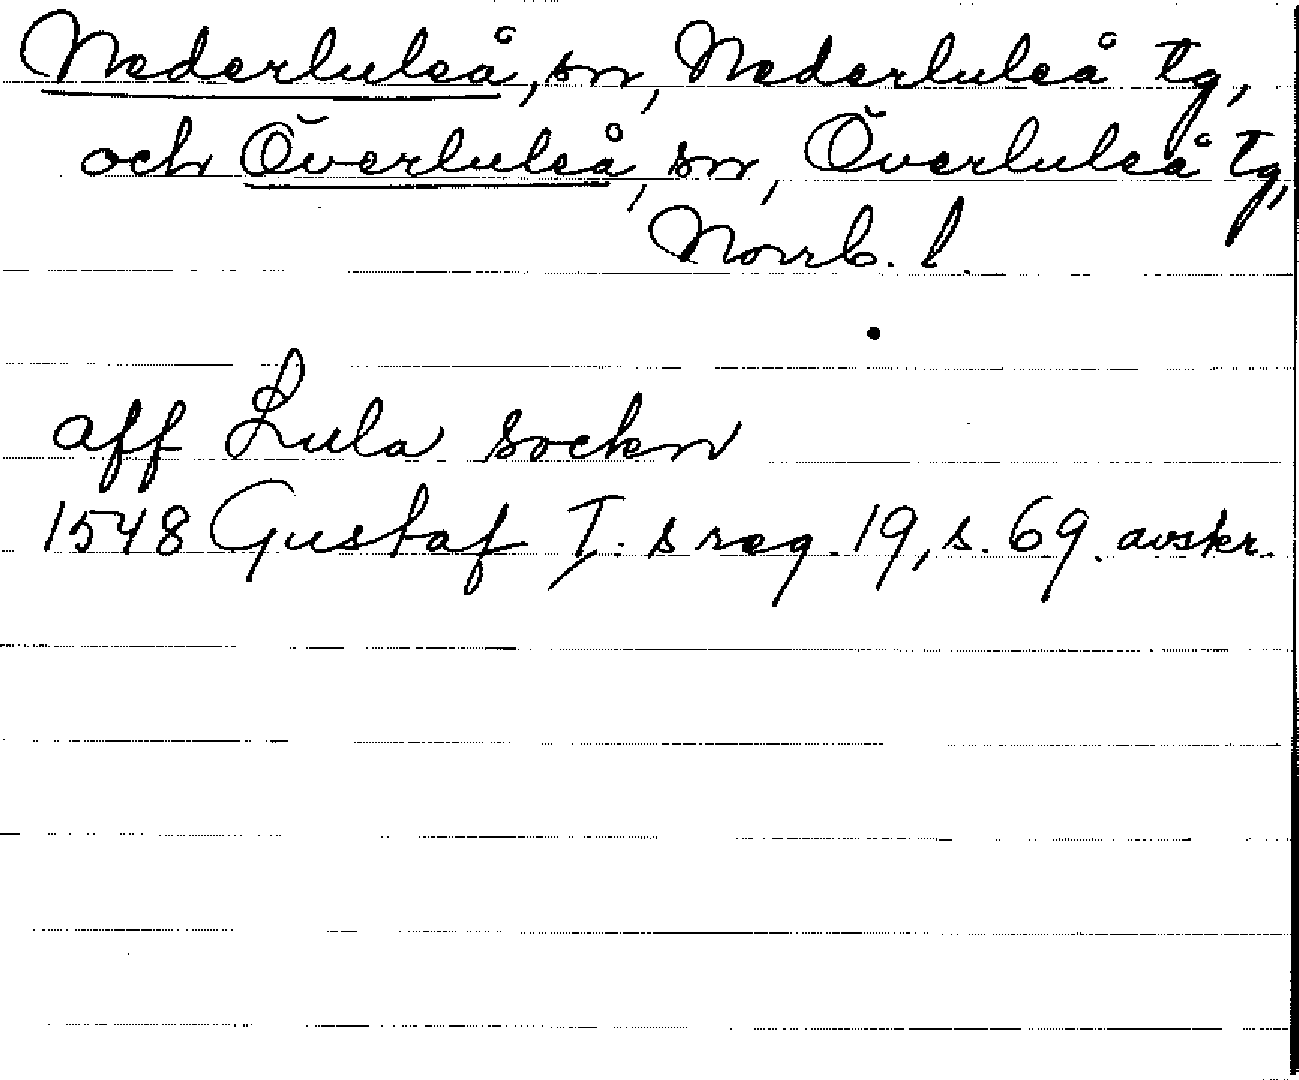 Nederluleå, sn, Nederluleå tg,
och Överluleå, sn, Överluleå tg,
Norrb. l.
aff Lula sockn
1548 Gustaf I. s reg. 19, s. 69. avskr.